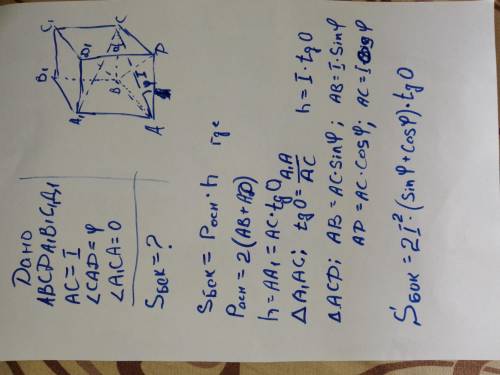 Дано
ABCDA₁B₁C₁Д₁
AC = I
∠CAD = φ
∠A₁CA = O
Sбок = ?
C₁
C
D₁
D
B₁
B
A₁
A
I
φ
Sбок = Pосн · h где
Pосн = 2(AB + AD)
h = AA₁ = AC · tg O
Δ A₁AC; tg O = A₁A / AC h = I · tg O
Δ ACD; AB = AC · sin φ; AB = I · sin φ
AD = AC · cos φ; AC = I cos φ
Sбок = 2I² · (sin φ + cos φ) · tg O